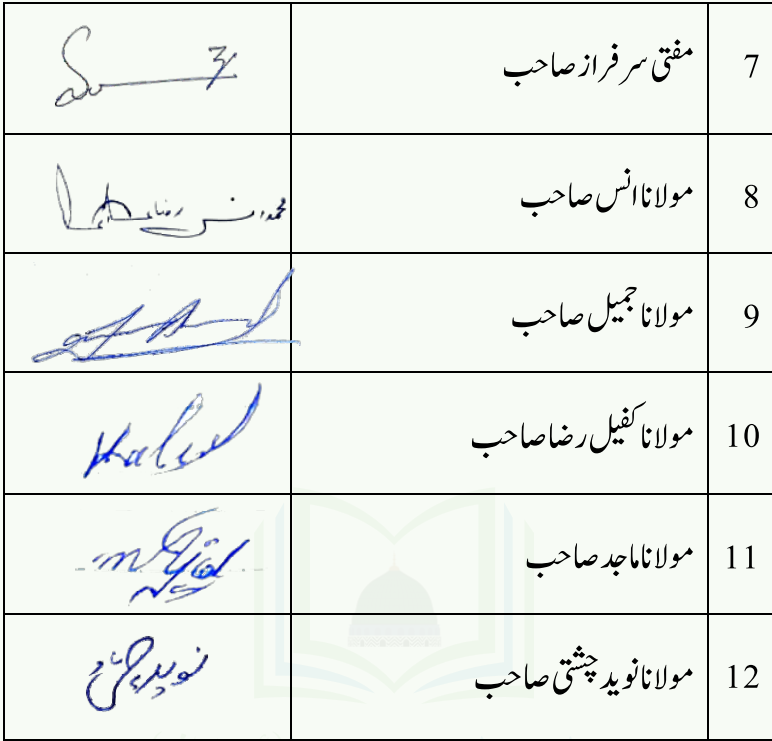 7 مفتی سرفراز صاحب
8 مولانا انس صاحب محمد انس رضا
9 مولانا جمیل صاحب
10 مولانا کفیل رضا صاحب
11 مولانا ماجد صاحب
12 مولانا نوید چشتی صاحب نوید چشتی